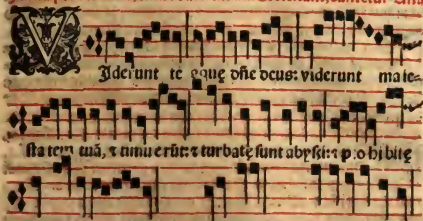 VIderunt te aque dñe deus: viderunt maie-
sta tem tuã, ⁊ timu erũt: ⁊ turbatę sunt abyssi: ⁊ p:o hi bitę